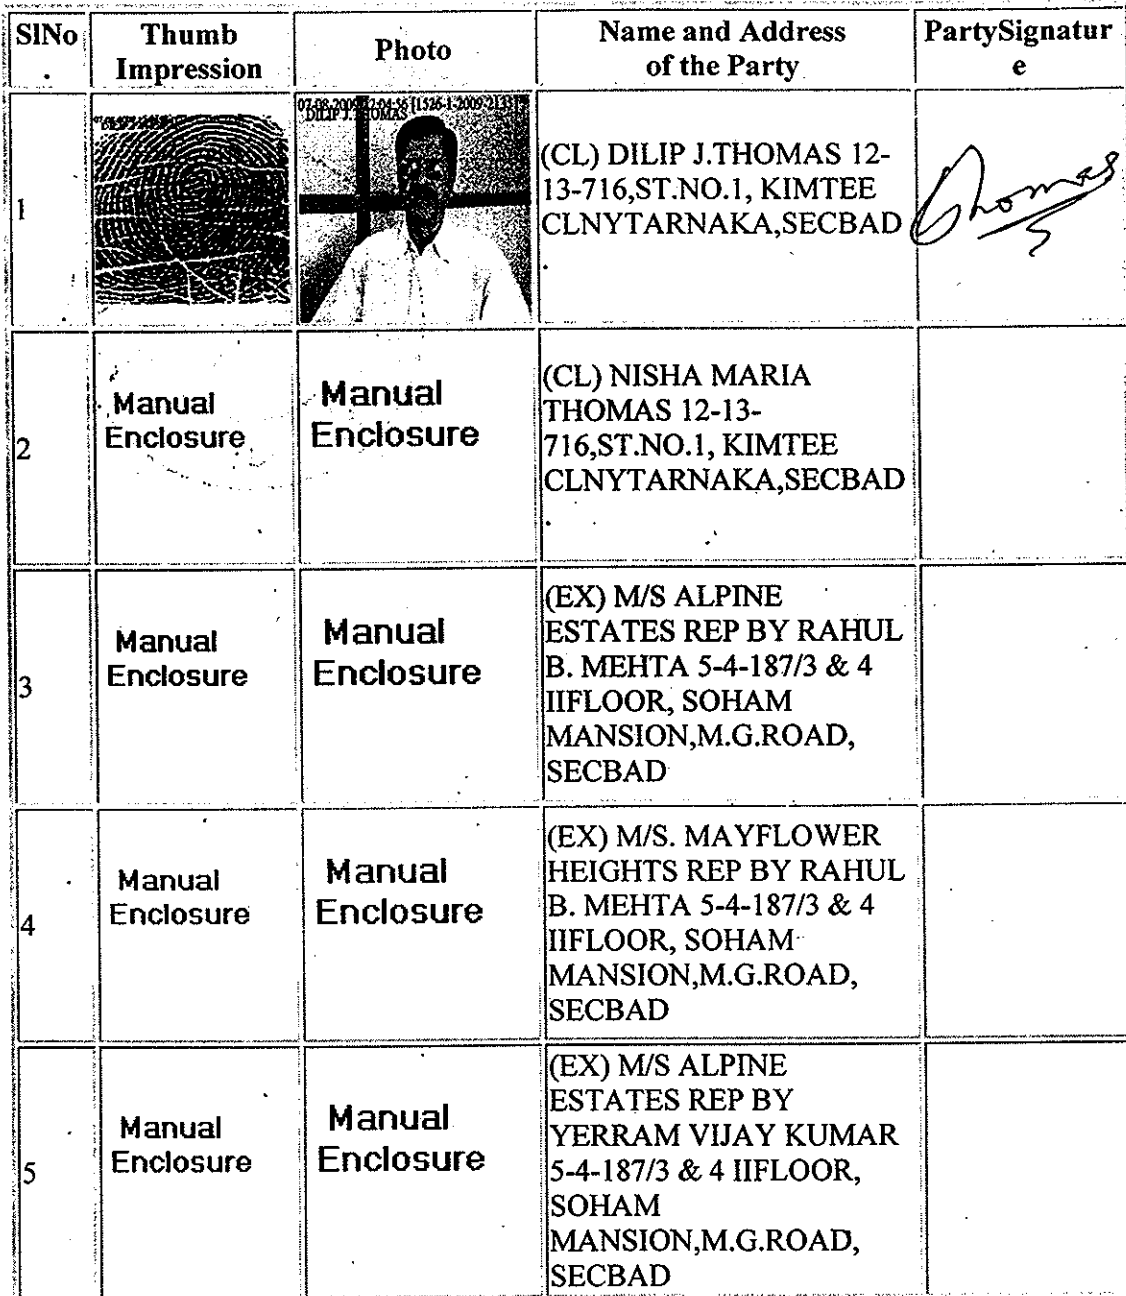 SlNo.
Thumb Impression
Photo
Name and Address
of the Party
PartySignatur
e
1
07-08-2009 12:04:56 [1526-1-2009-2133]
DILIP J.THOMAS
(CL) DILIP J.THOMAS 12-
13-716,ST.NO.1, KIMTEE
CLNYTARNAKA,SECBAD
Thomas
2
Manual
Enclosure
Manual
Enclosure
(CL) NISHA MARIA
THOMAS 12-13-
716,ST.NO.1, KIMTEE
CLNYTARNAKA,SECBAD
3
Manual
Enclosure
Manual
Enclosure
(EX) M/S ALPINE
ESTATES REP BY RAHUL
B. MEHTA 5-4-187/3 & 4
IIFLOOR, SOHAM
MANSION,M.G.ROAD,
SECBAD
4
Manual
Enclosure
Manual
Enclosure
(EX) M/S. MAYFLOWER
HEIGHTS REP BY RAHUL
B. MEHTA 5-4-187/3 & 4
IIFLOOR, SOHAM
MANSION,M.G.ROAD,
SECBAD
5
Manual
Enclosure
Manual
Enclosure
(EX) M/S ALPINE
ESTATES REP BY
YERRAM VIJAY KUMAR
5-4-187/3 & 4 IIFLOOR,
SOHAM
MANSION,M.G.ROAD,
SECBAD